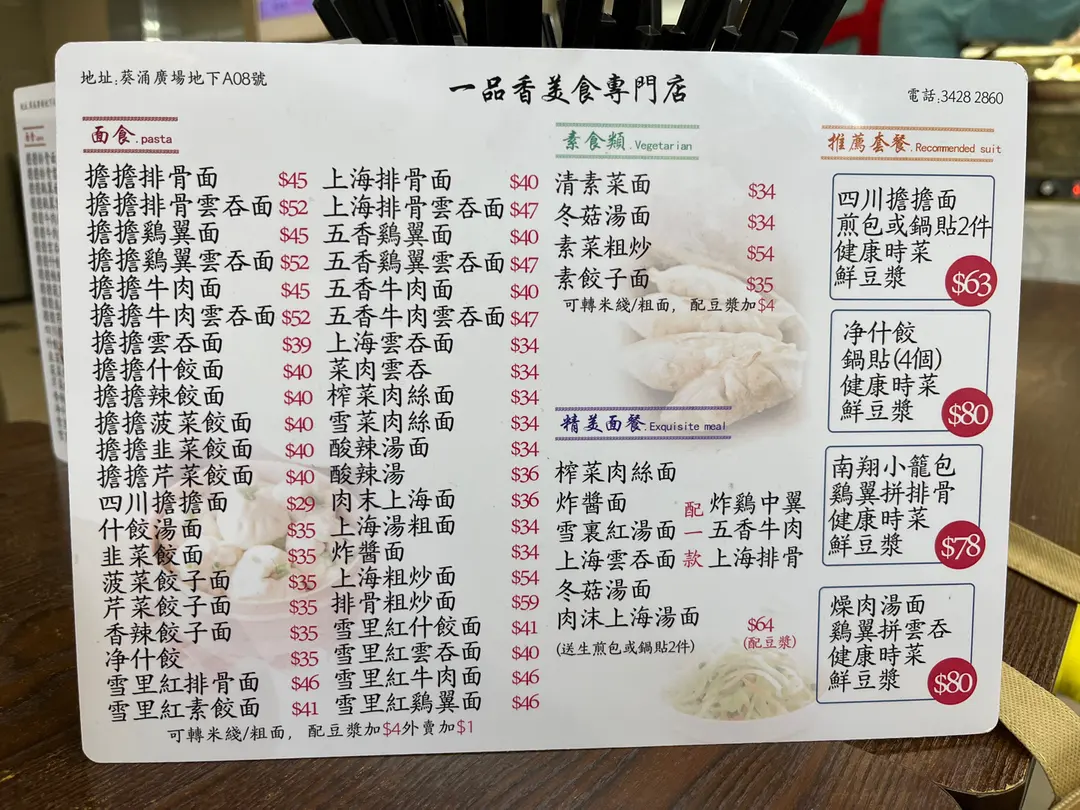 地址:葵涌廣場地下A08號
一品香美食專門店
電話:3428 2860
面食.pasta
擔擔排骨面 $45
擔擔排骨雲吞面 $52
擔擔鷄翼面 $45
擔擔鷄翼雲吞面 $52
擔擔牛肉面 $45
擔擔牛肉雲吞面 $52
擔擔雲吞面 $39
擔擔什餃面 $40
擔擔辣餃面 $40
擔擔菠菜餃面 $40
擔擔韭菜餃面 $40
擔擔芹菜餃面 $40
四川擔擔面 $29
什餃湯面 $35
韭菜餃面 $35
菠菜餃子面 $35
芹菜餃子面 $35
香辣餃子面 $35
净什餃 $35
雪里紅排骨面 $46
雪里紅素餃面 $41
上海排骨面 $40
上海排骨雲吞面 $47
五香鷄翼面 $40
五香鷄翼雲吞面 $47
五香牛肉面 $40
五香牛肉雲吞面 $47
上海雲吞面 $34
菜肉雲吞 $34
榨菜肉絲面 $34
雪菜肉絲面 $34
酸辣湯面 $34
酸辣湯 $36
肉末上海面 $36
上海湯粗面 $34
炸醬面 $34
上海粗炒面 $54
排骨粗炒面 $59
雪里紅什餃面 $41
雪里紅雲吞面 $40
雪里紅牛肉面 $46
雪里紅鷄翼面 $46
可轉米綫/粗面, 配豆漿加$4外賣加$1
素食類.Vegetarian
清素菜面 $34
冬菇湯面 $34
素菜粗炒 $54
素餃子面 $35
可轉米綫/粗面, 配豆漿加$4
精美面餐.Exquisite meal
榨菜肉絲面
炸醬面 配 炸鷄中翼
雪裏紅湯面 一 五香牛肉
上海雲吞面 款 上海排骨
冬菇湯面
肉沫上海湯面 $64
(送生煎包或鍋貼2件) (配豆漿)
推薦套餐.Recommended suit
四川擔擔面
煎包或鍋貼2件
健康時菜
鮮豆漿 $63
净什餃
鍋貼(4個)
健康時菜
鮮豆漿 $80
南翔小籠包
鷄翼拼排骨
健康時菜
鮮豆漿 $78
燥肉湯面
鷄翼拼雲吞
健康時菜
鮮豆漿 $80